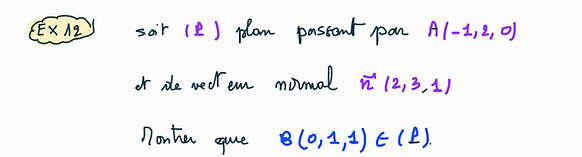 Ex 12 soit (P) plan passant par A(-1,2,0)
et de vecteur normal n⃗ (2,3,1)
Montrer que B(0,1,1) ∈ (P).